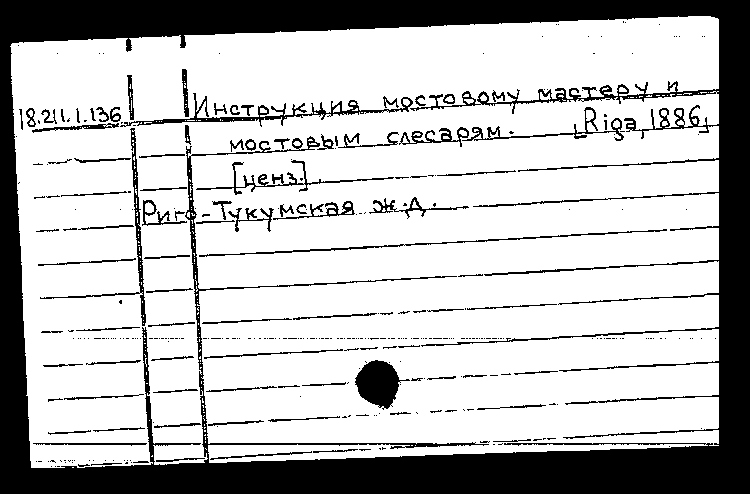 18.211.1.136 Инструкция мостовому мастеру и
мостовым слесарям. [Riga, 1886]
[ценз.].
Риго-Тукумская ж.д.